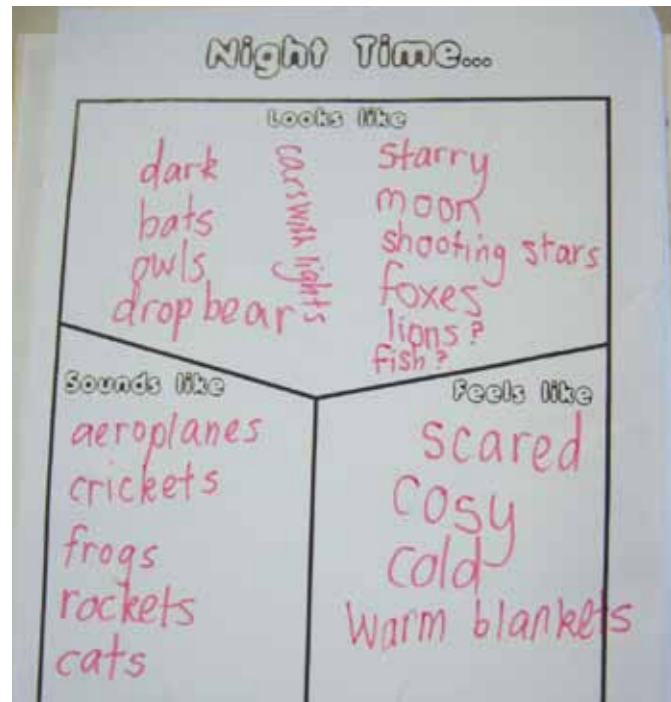 Night Time...
Looks like
dark
bats
owls
drop bear
cars with lights
starry
moon
shooting stars
foxes
lions?
fish?
Sounds like
aeroplanes
crickets
frogs
rockets
cats
Feels like
scared
cosy
cold
warm blankets